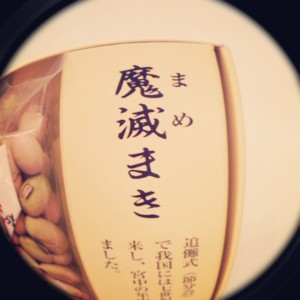 魔滅まき
まめ
追儺式(節分会)
で我国には七世
来し、宮中の年
ました。